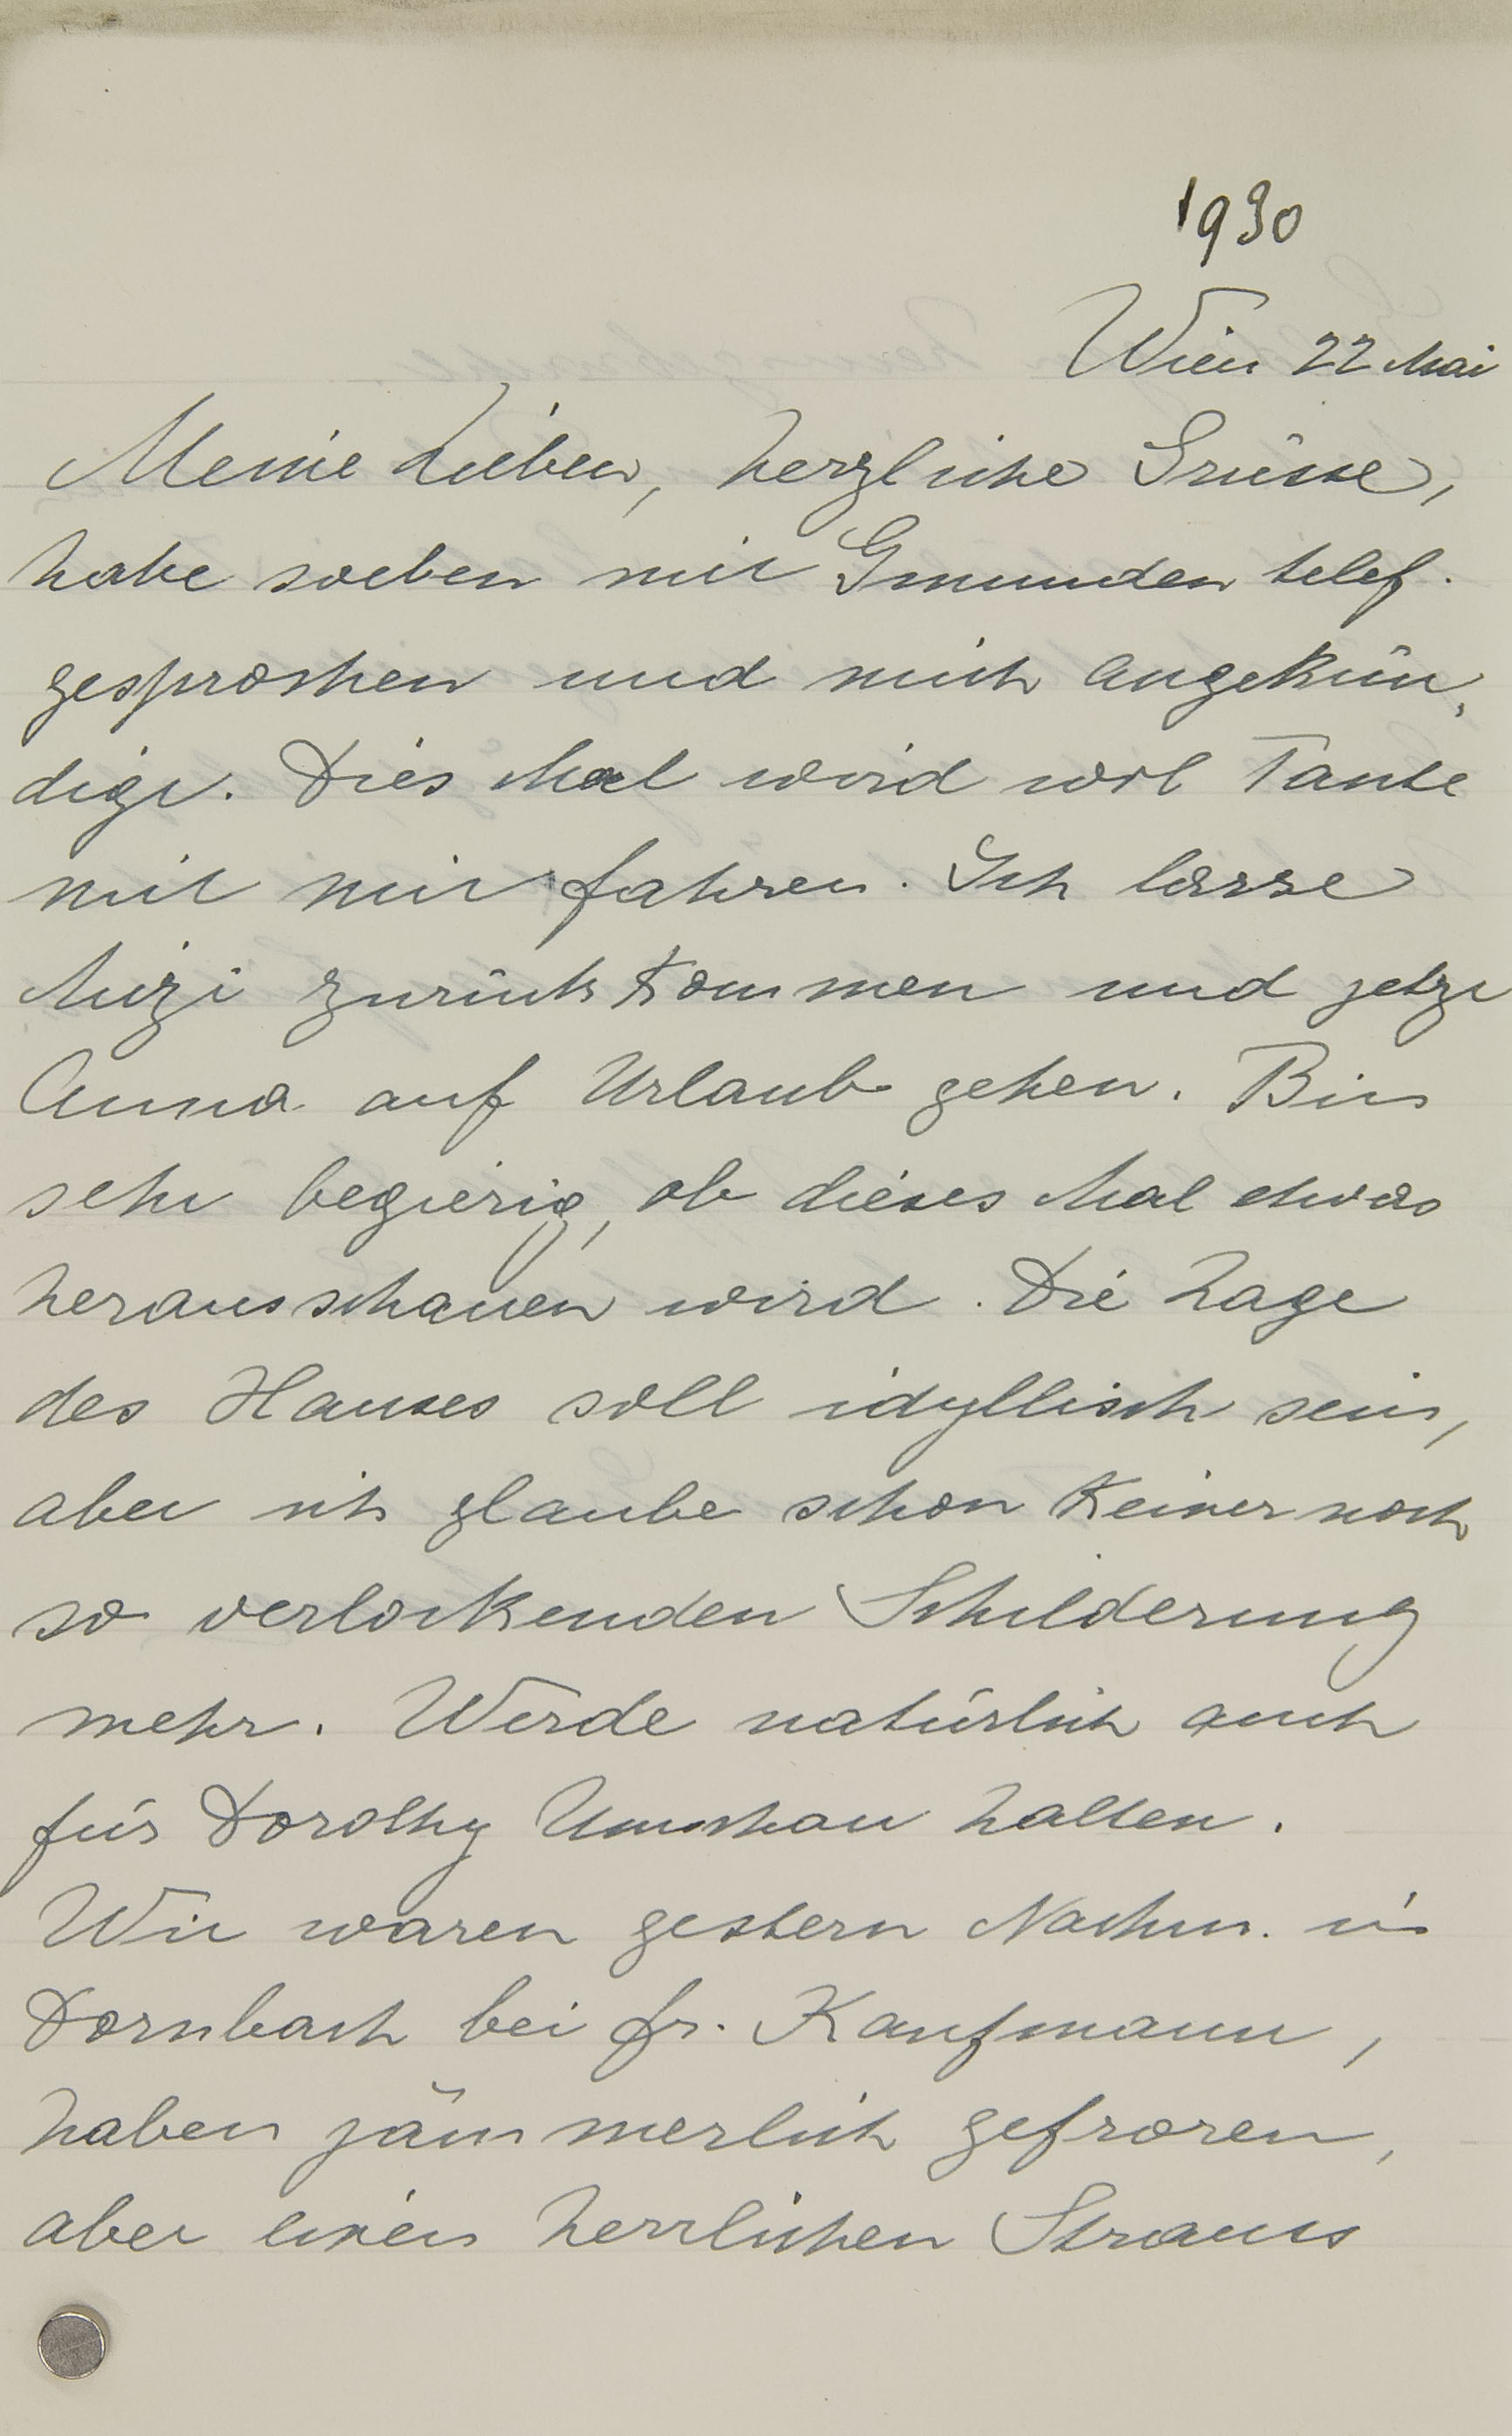 1930
Wien 22 Mai
Meine Lieben, herzliche Grüsse,
habe soeben mit Gmunden telef.
gesprochen und mich angekün-
digt. Dies Mal wird wol Tante
mit mir fahren. Ich lasse
Mizi zurück kommen und jetzt
Anna auf Urlaub gehen. Bin
sehr begierig, ob dieses Mal etwas
herausschauen wird. Die Lage
des Hauses soll idyllisch sein,
aber ich glaube schon keiner noch
so verlockenden Schilderung
mehr. Werde natürlich auch
für Dorothy Umschau halten.
Wir waren gestern Nachm. in
Dornbach bei Fr. Kaufmann,
haben jämmerlich gefroren,
aber einen herrlichen Straus